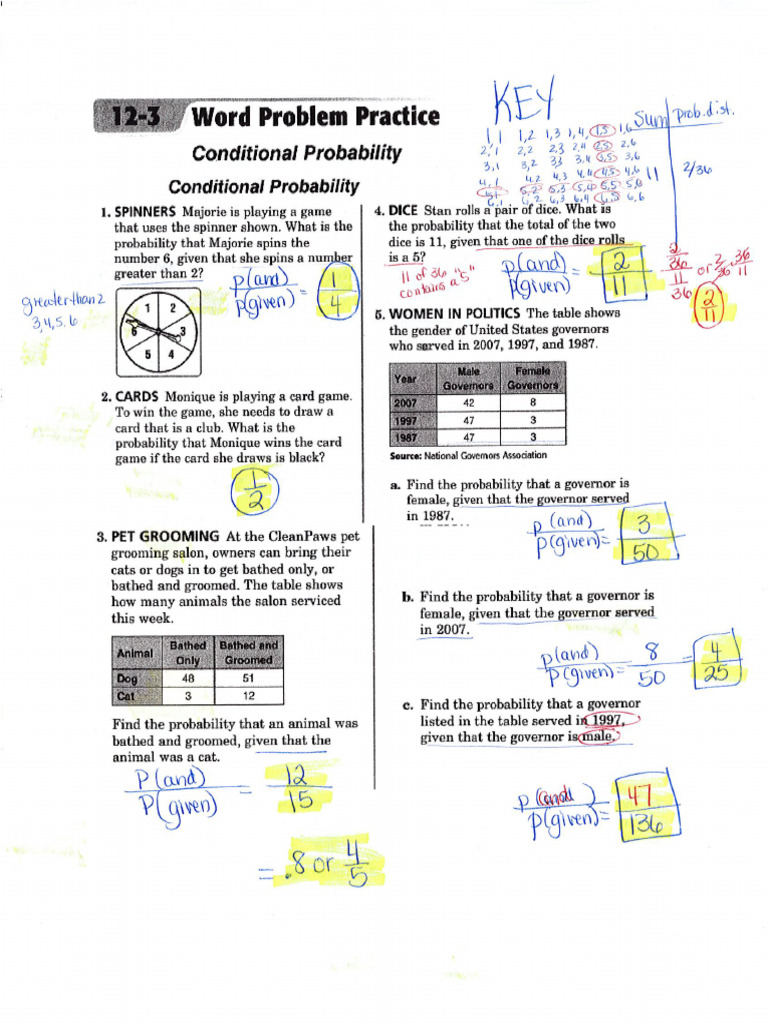 KEY
12-3 Word Problem Practice
Conditional Probability
Conditional Probability
1,1 1,2 1,3 1,4 1,5 1,6
2,1 2,2 2,3 2,4 2,5 2,6
3,1 3,2 3,3 3,4 3,5 3,6
4,1 4,2 4,3 4,4 4,5 4,6
5,1 5,2 5,3 5,4 5,5 5,6
6,1 6,2 6,3 6,4 6,5 6,6
Sum prob. dist.
11 2/36
1. SPINNERS Majorie is playing a game
that uses the spinner shown. What is the
probability that Majorie spins the
number 6, given that she spins a number
greater than 2?
p(and)
p(given) =
1
4
greater than 2
3,4,5,6
1 2
6 3
5 4
2. CARDS Monique is playing a card game.
To win the game, she needs to draw a
card that is a club. What is the
probability that Monique wins the card
game if the card she draws is black?
1
2
3. PET GROOMING At the CleanPaws pet
grooming salon, owners can bring their
cats or dogs in to get bathed only, or
bathed and groomed. The table shows
how many animals the salon serviced
this week.
Animal Bathed Only Bathed and Groomed
Dog 48 51
Cat 3 12
Find the probability that an animal was
bathed and groomed, given that the
animal was a cat.
P(and) 12
P(given) = 15
= .8 or 4
5
4. DICE Stan rolls a pair of dice. What is
the probability that the total of the two
dice is 11, given that one of the dice rolls
is a 5?
11 of 36 "5"
contains a 5
p(and) = 2
p(given) 11
2
36
11
36
or 2 . 36
36 11
2
11
5. WOMEN IN POLITICS The table shows
the gender of United States governors
who served in 2007, 1997, and 1987.
Year Male Governors Female Governors
2007 42 8
1997 47 3
1987 47 3
Source: National Governors Association
a. Find the probability that a governor is
female, given that the governor served
in 1987.
p(and) 3
p(given) = 50
b. Find the probability that a governor is
female, given that the governor served
in 2007.
p(and) 8 = 4
p(given) = 50 25
c. Find the probability that a governor
listed in the table served in 1997,
given that the governor is male.
p(and) 47
p(given) = 136